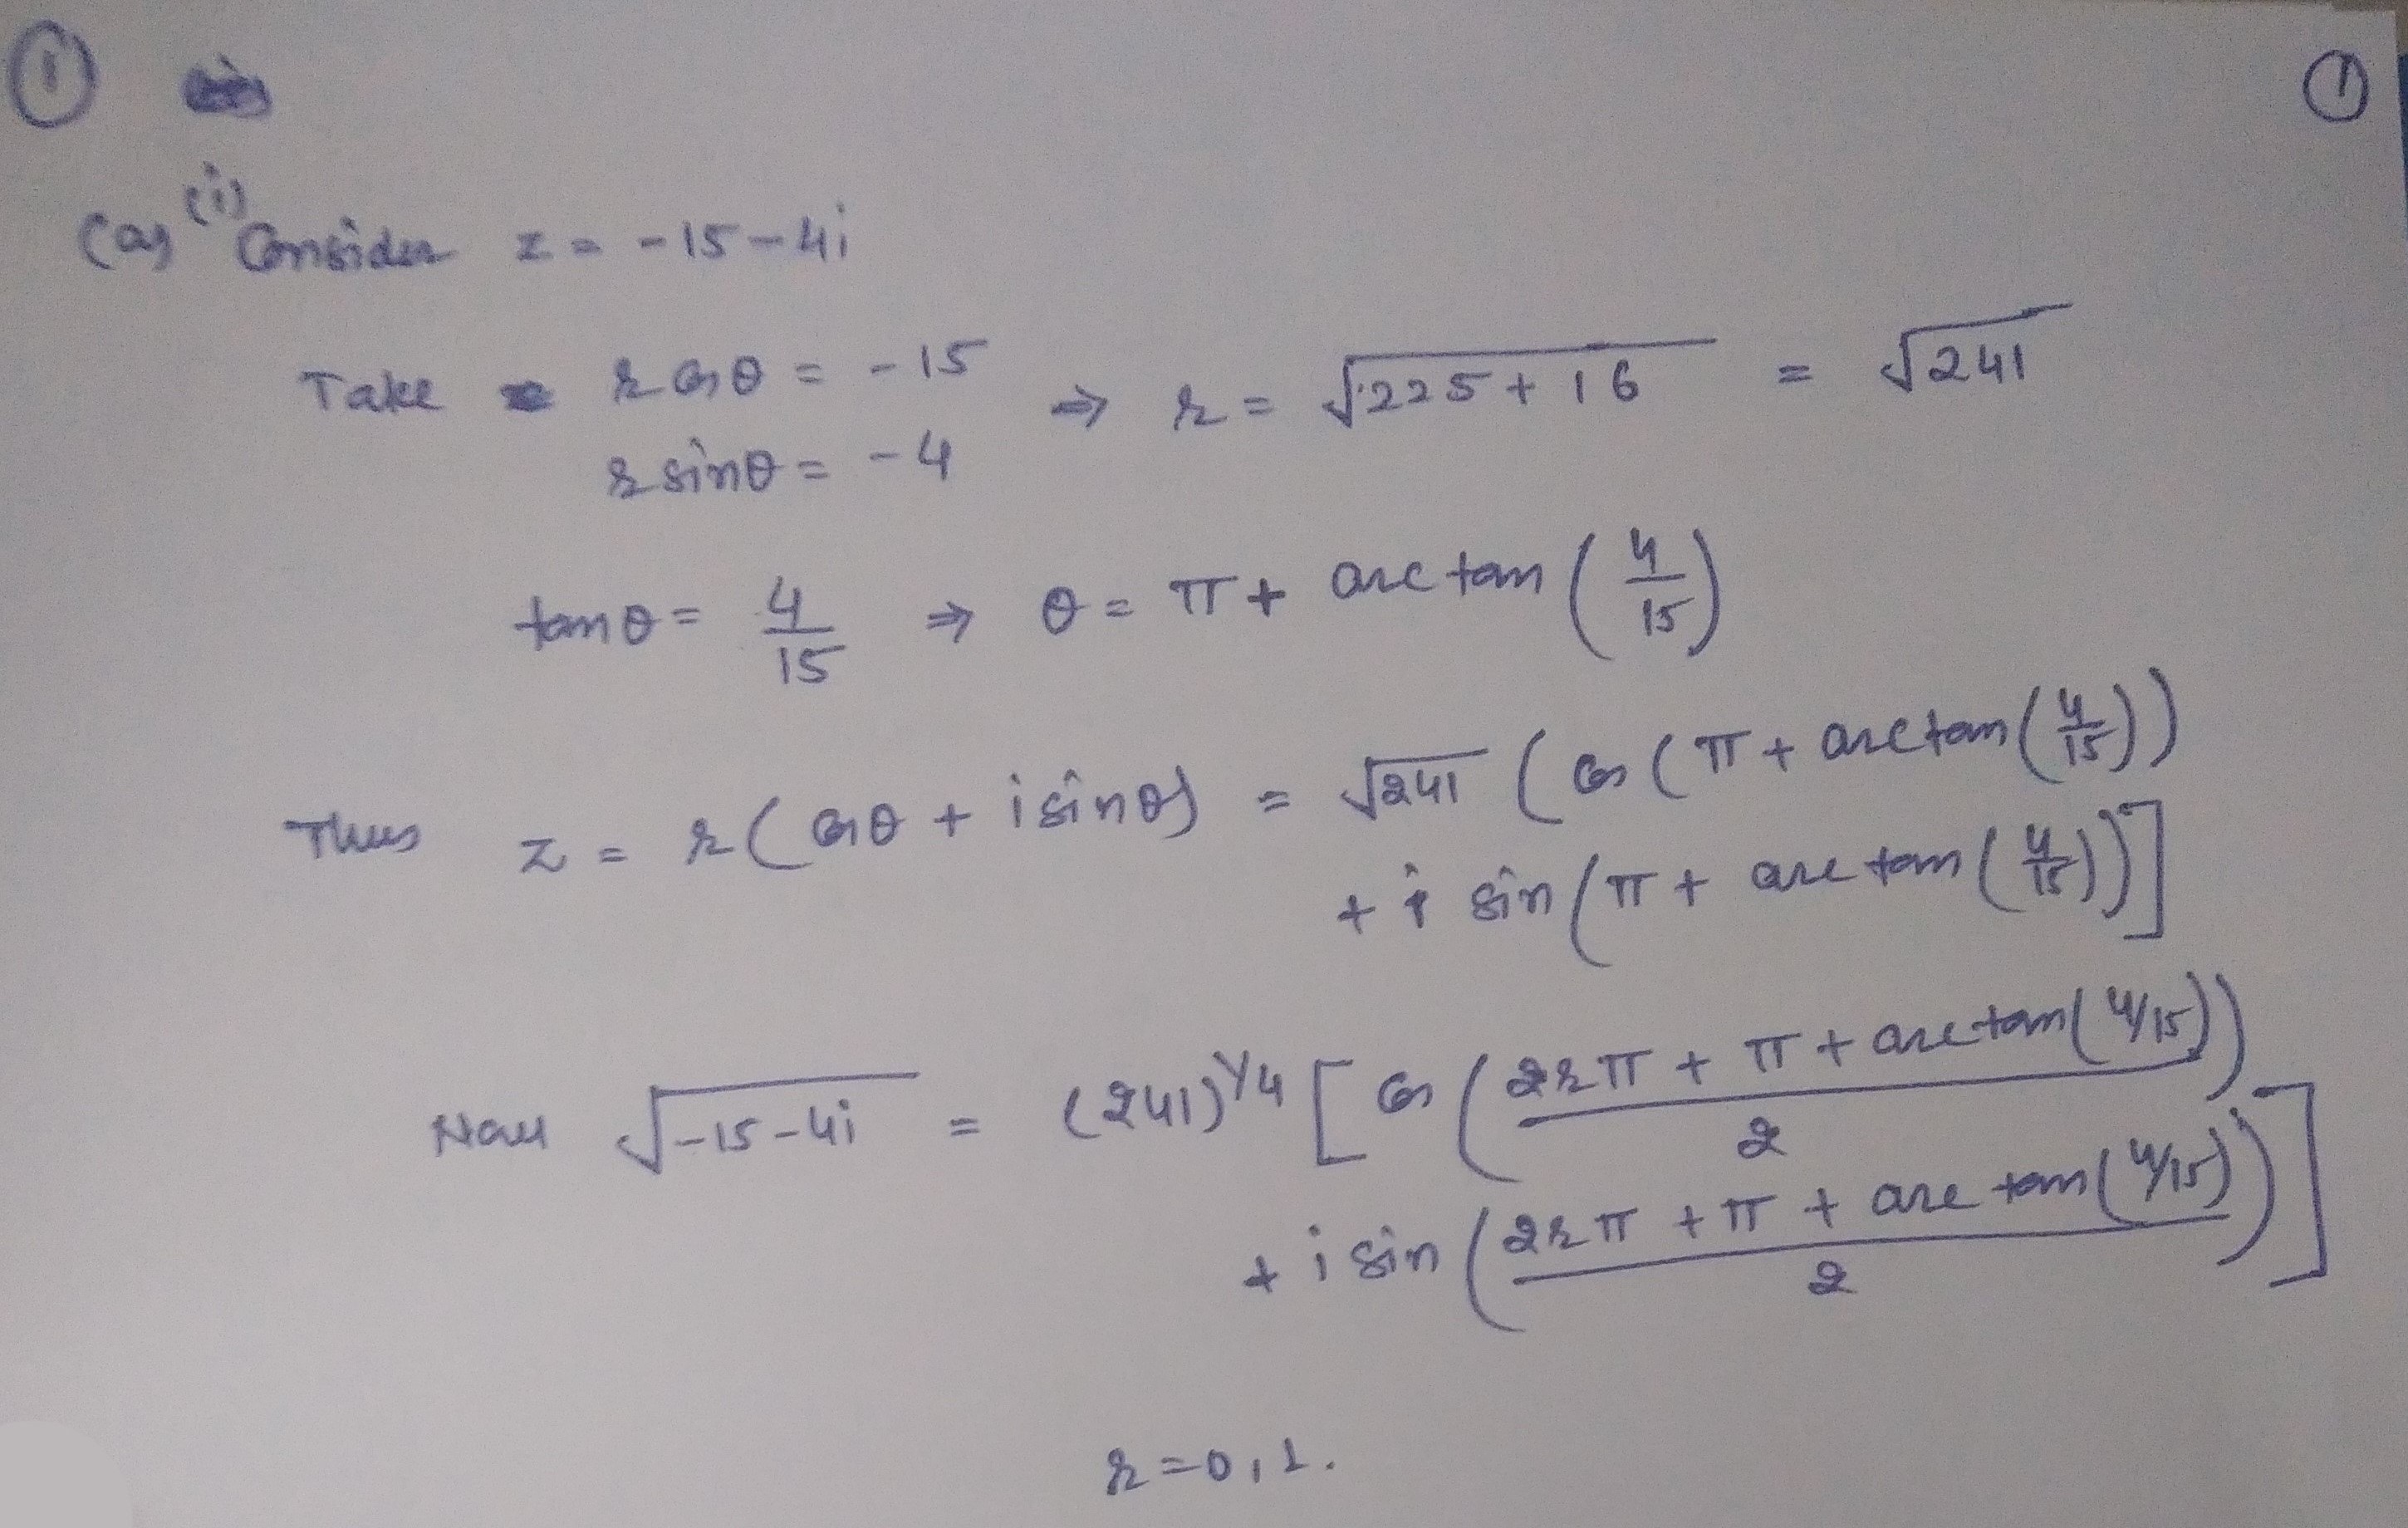 ① ①
(a) (i) Consider z = -15-4i
Take r cosθ = -15 ⇒ r = √225+16 = √241
r sinθ = -4
tanθ = 4/15 ⇒ θ = π + arc tan (4/15)
Thus z = r(cosθ + i sinθ) = √241 (cos (π + arctan(4/15))
+ i sin (π + arc tan (4/15))]
Now √-15-4i = (241)^1/4 [cos (2rπ + π + arctan(4/15)/2)
+ i sin (2rπ + π + arc tan(4/15)/2)]
r=0,1.